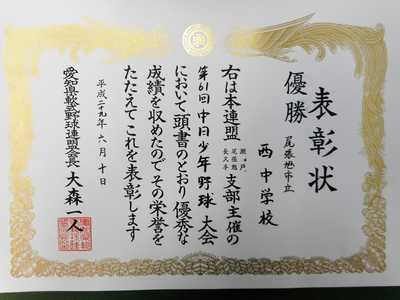 表彰状
優勝
尾張旭市立
西中学校
右は本連盟瀬戸尾張旭長久手支部主催の
第61回中日少年野球大会
において頭書のとおり優秀な
成績を収めたのでその栄誉を
たたえてこれを表彰します
平成二十九年六月十日
愛知県軟式野球連盟会長 大森一人